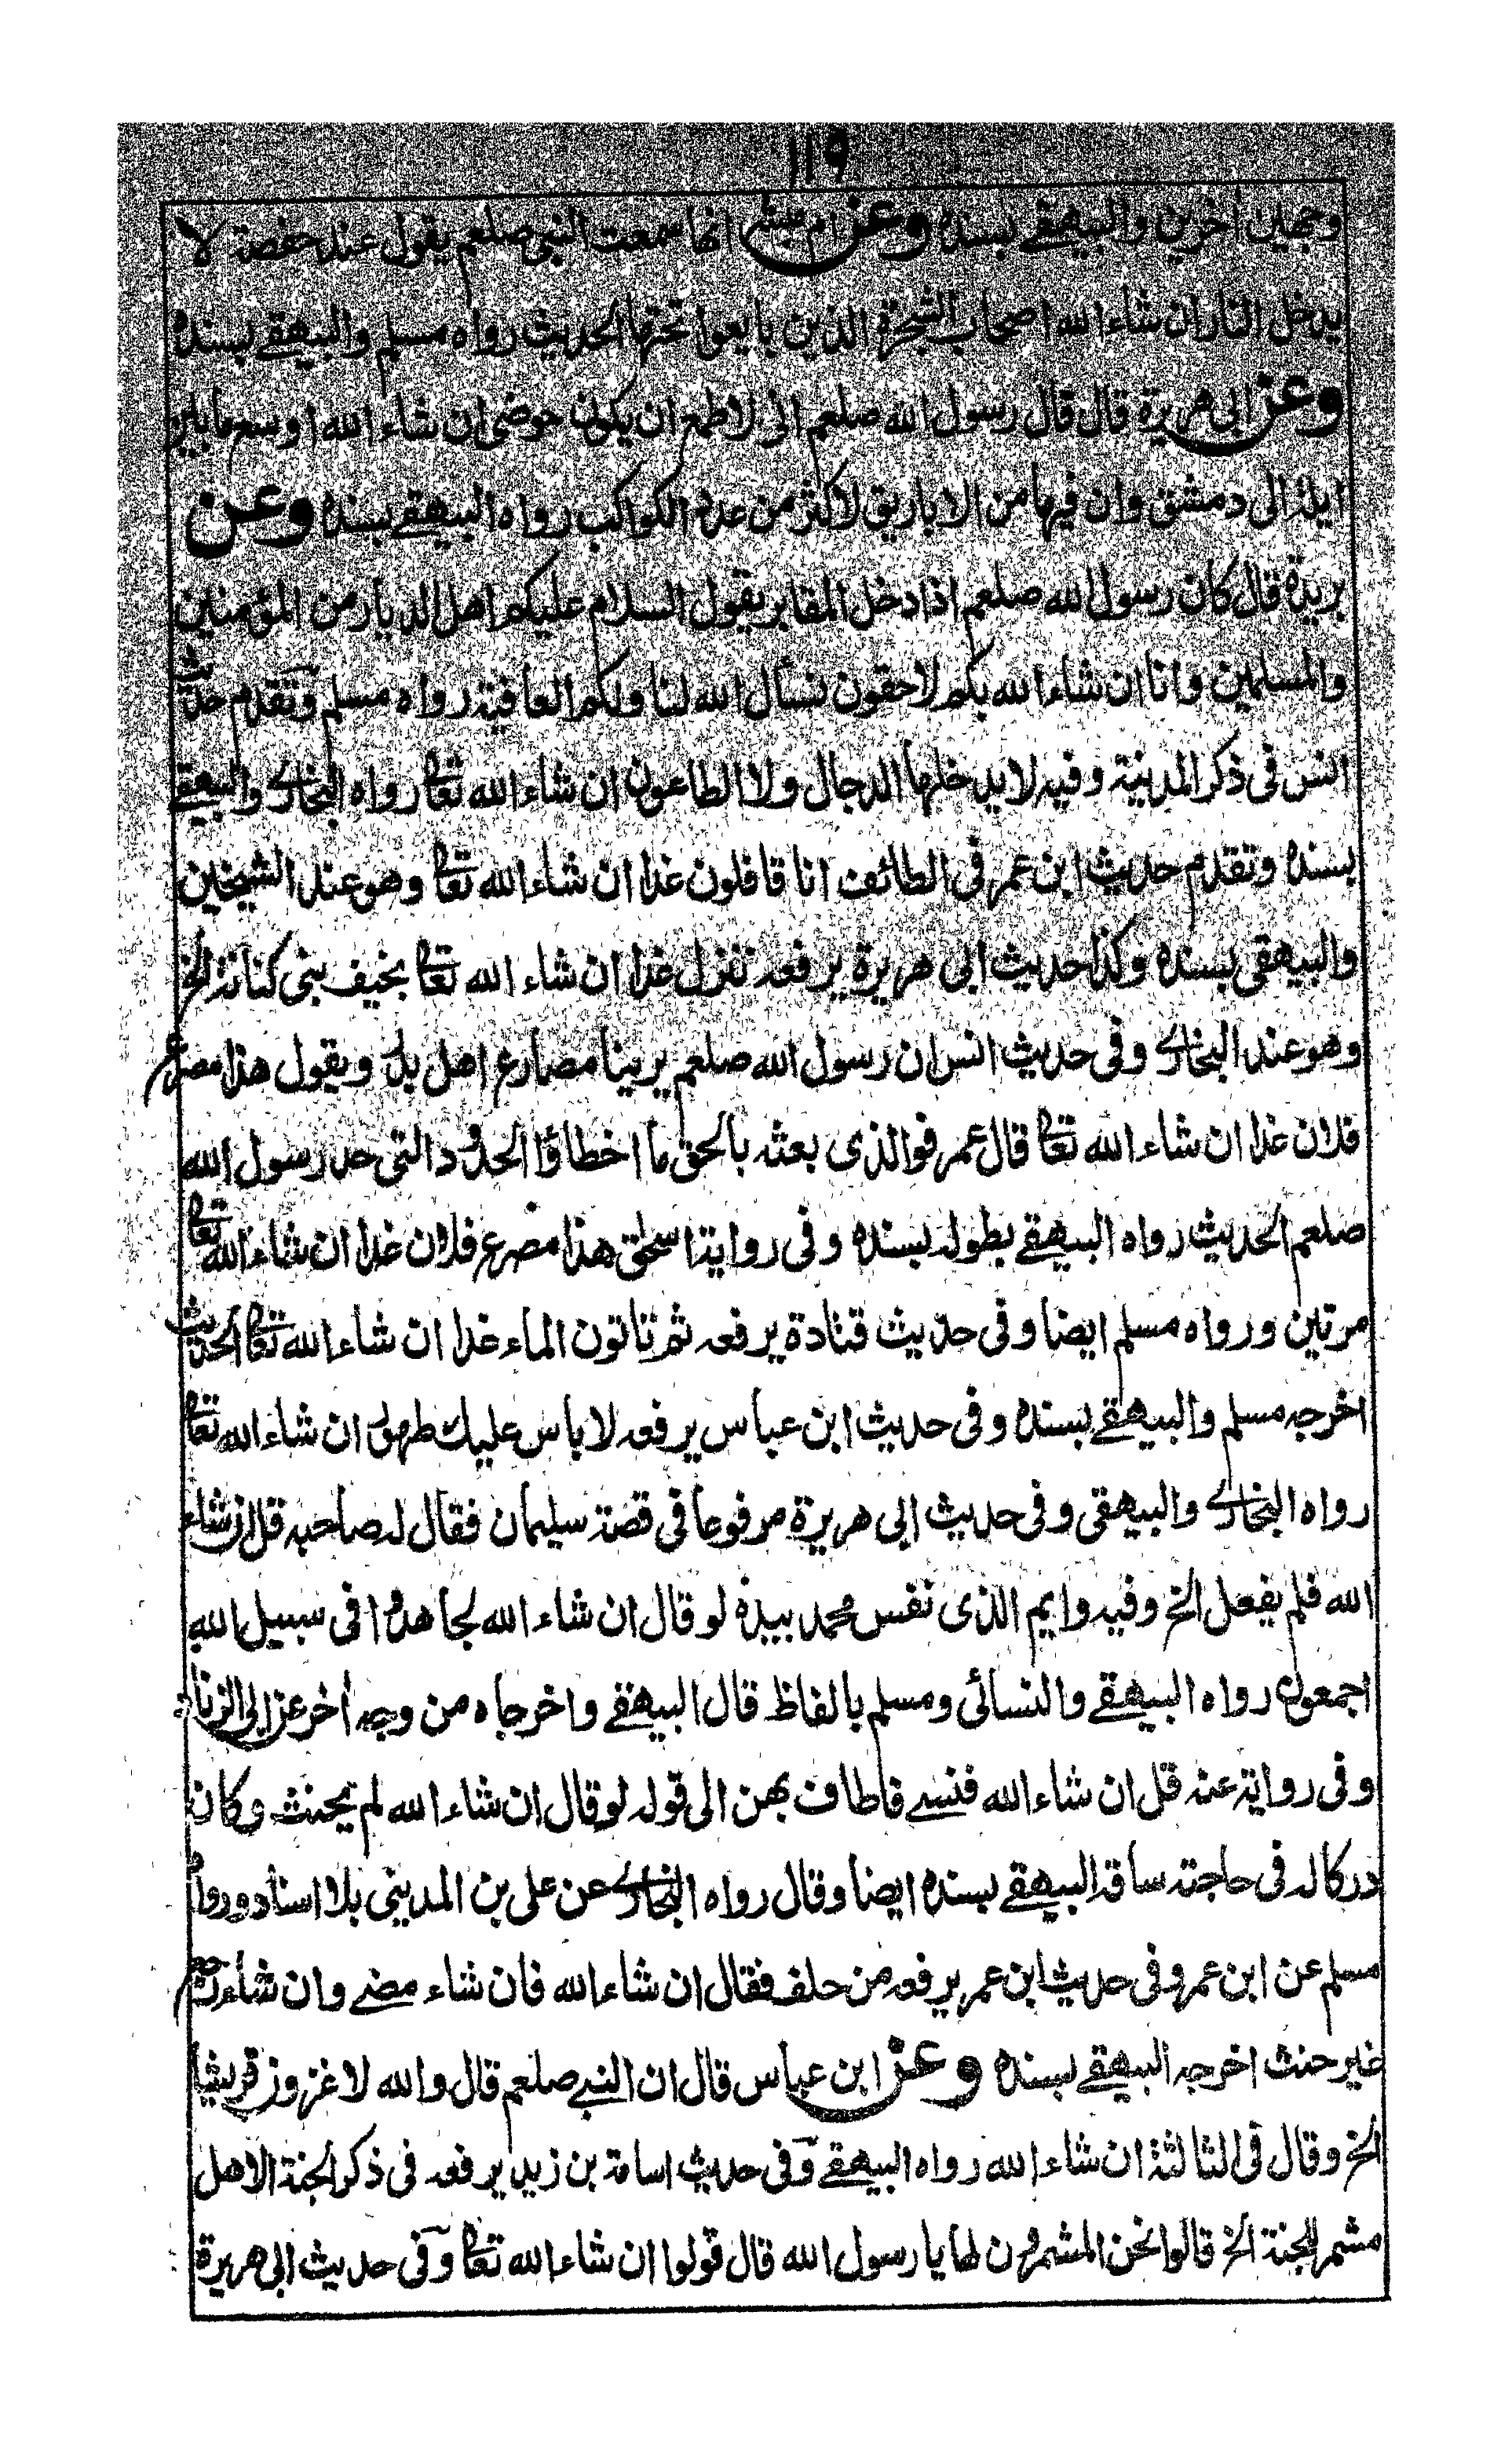 ۱۱۹
وجهين أخرين والبيهقے بسنده وعن ام مبشر انها سمعت النبى صلعم يقول عند حفصة لا
يدخل النار ان شاء الله اصحاب الشجرة الذين بايعوا تحتها الحديث رواه مسلم والبيهقے بسنده
وعن ابى هريرة قال قال رسول الله صلعم انى لاطمع ان يكون حوضى ان شاء الله اوسع ما بين
ايلة الى دمشق وان فيها من الاباريق لاكثر من عدد الكواكب رواه البيهقے بسنده وعن
بريدة قال كان رسول الله صلعم اذا دخل المقابر يقول السلام عليكم اهل الديار من المؤمنين
والمسلمين وانا ان شاء الله بكم لاحقون نسأل الله لنا ولكم العافية رواه مسلم وتقدم حديث
انس فى ذكر المدينة وفيه لا يدخلها الدجال ولا الطاعون ان شاء الله تعالى رواه البخارى والبيهقے
بسنده وتقدم حديث ابن عمر فى الطائف انا قافلون غدا ان شاء الله تعالى وهو عند الشيخين
والبيهقى بسنده وكذا حديث ابى هريرة يرفعه ننزل غدا ان شاء الله تعالى بخيف بنى كنانة الخ
وهو عند البخارى وفى حديث انس ان رسول الله صلعم يرينا مصارع اهل بدر ويقول هذا مصرع
فلان غدا ان شاء الله تعالى قال عمر فوالذى بعثه بالحق ما اخطاؤا الحدود التى حد رسول الله
صلعم الحديث رواه البيهقے بطوله بسنده وفى رواية اسحق هذا مصرع فلان غدا ان شاء الله تعالى
مرتين ورواه مسلم ايضا وفى حديث قتادة يرفعه ثم تاتون الماء غدا ان شاء الله تعالى الحديث
اخرجه مسلم والبيهقے بسنده وفى حديث ابن عباس يرفعه لا باس عليك طهور ان شاء الله تعالى
رواه البخارى والبيهقى وفى حديث ابى هريرة مرفوعا فى قصة سليمان فقال له صاحبه قل ان شاء
الله فلم يفعل الخ وفيه وايم الذى نفس محمد بيده لو قال ان شاء الله لجاهدوا فى سبيل الله
اجمعون رواه البيهقے والنسائى ومسلم بالفاظ قال البيهقے واخرجاه من وجه أخر عن ابى الزناد
وفى رواية عنه قل ان شاء الله فنسے فاطاف بهن الى قوله لو قال ان شاء الله لم يحنث وكان
دركا له فى حاجته ساقه البيهقے بسنده ايضا وقال رواه البخارى عن على بن المدينى بلا اسناد ورواه
مسلم عن ابن عمر وفى حديث ابن عمر يرفعه من حلف فقال ان شاء الله فان شاء مضے وان شاء رجع
غير حنث اخرجه البيهقے بسنده وعن ابن عباس قال ان النبے صلعم قال والله لاغزون قريشا
الخ وقال فى الثالثة ان شاء الله رواه البيهقے وفى حديث اسامة بن زيد يرفعه فى ذكر الجنة الا هل
مشمر للجنة الخ قالوا نحن المشمرون لها يا رسول الله قال قولوا ان شاء الله تعالى وفى حديث ابى هريرة